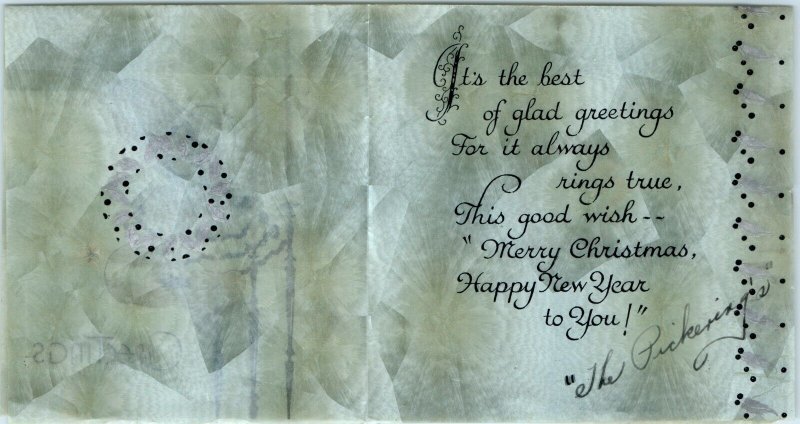 It's the best
of glad greetings
For it always
rings true,
This good wish--
"Merry Christmas,
Happy New Year
to You!"
"The Pickering's"
GREETINGS